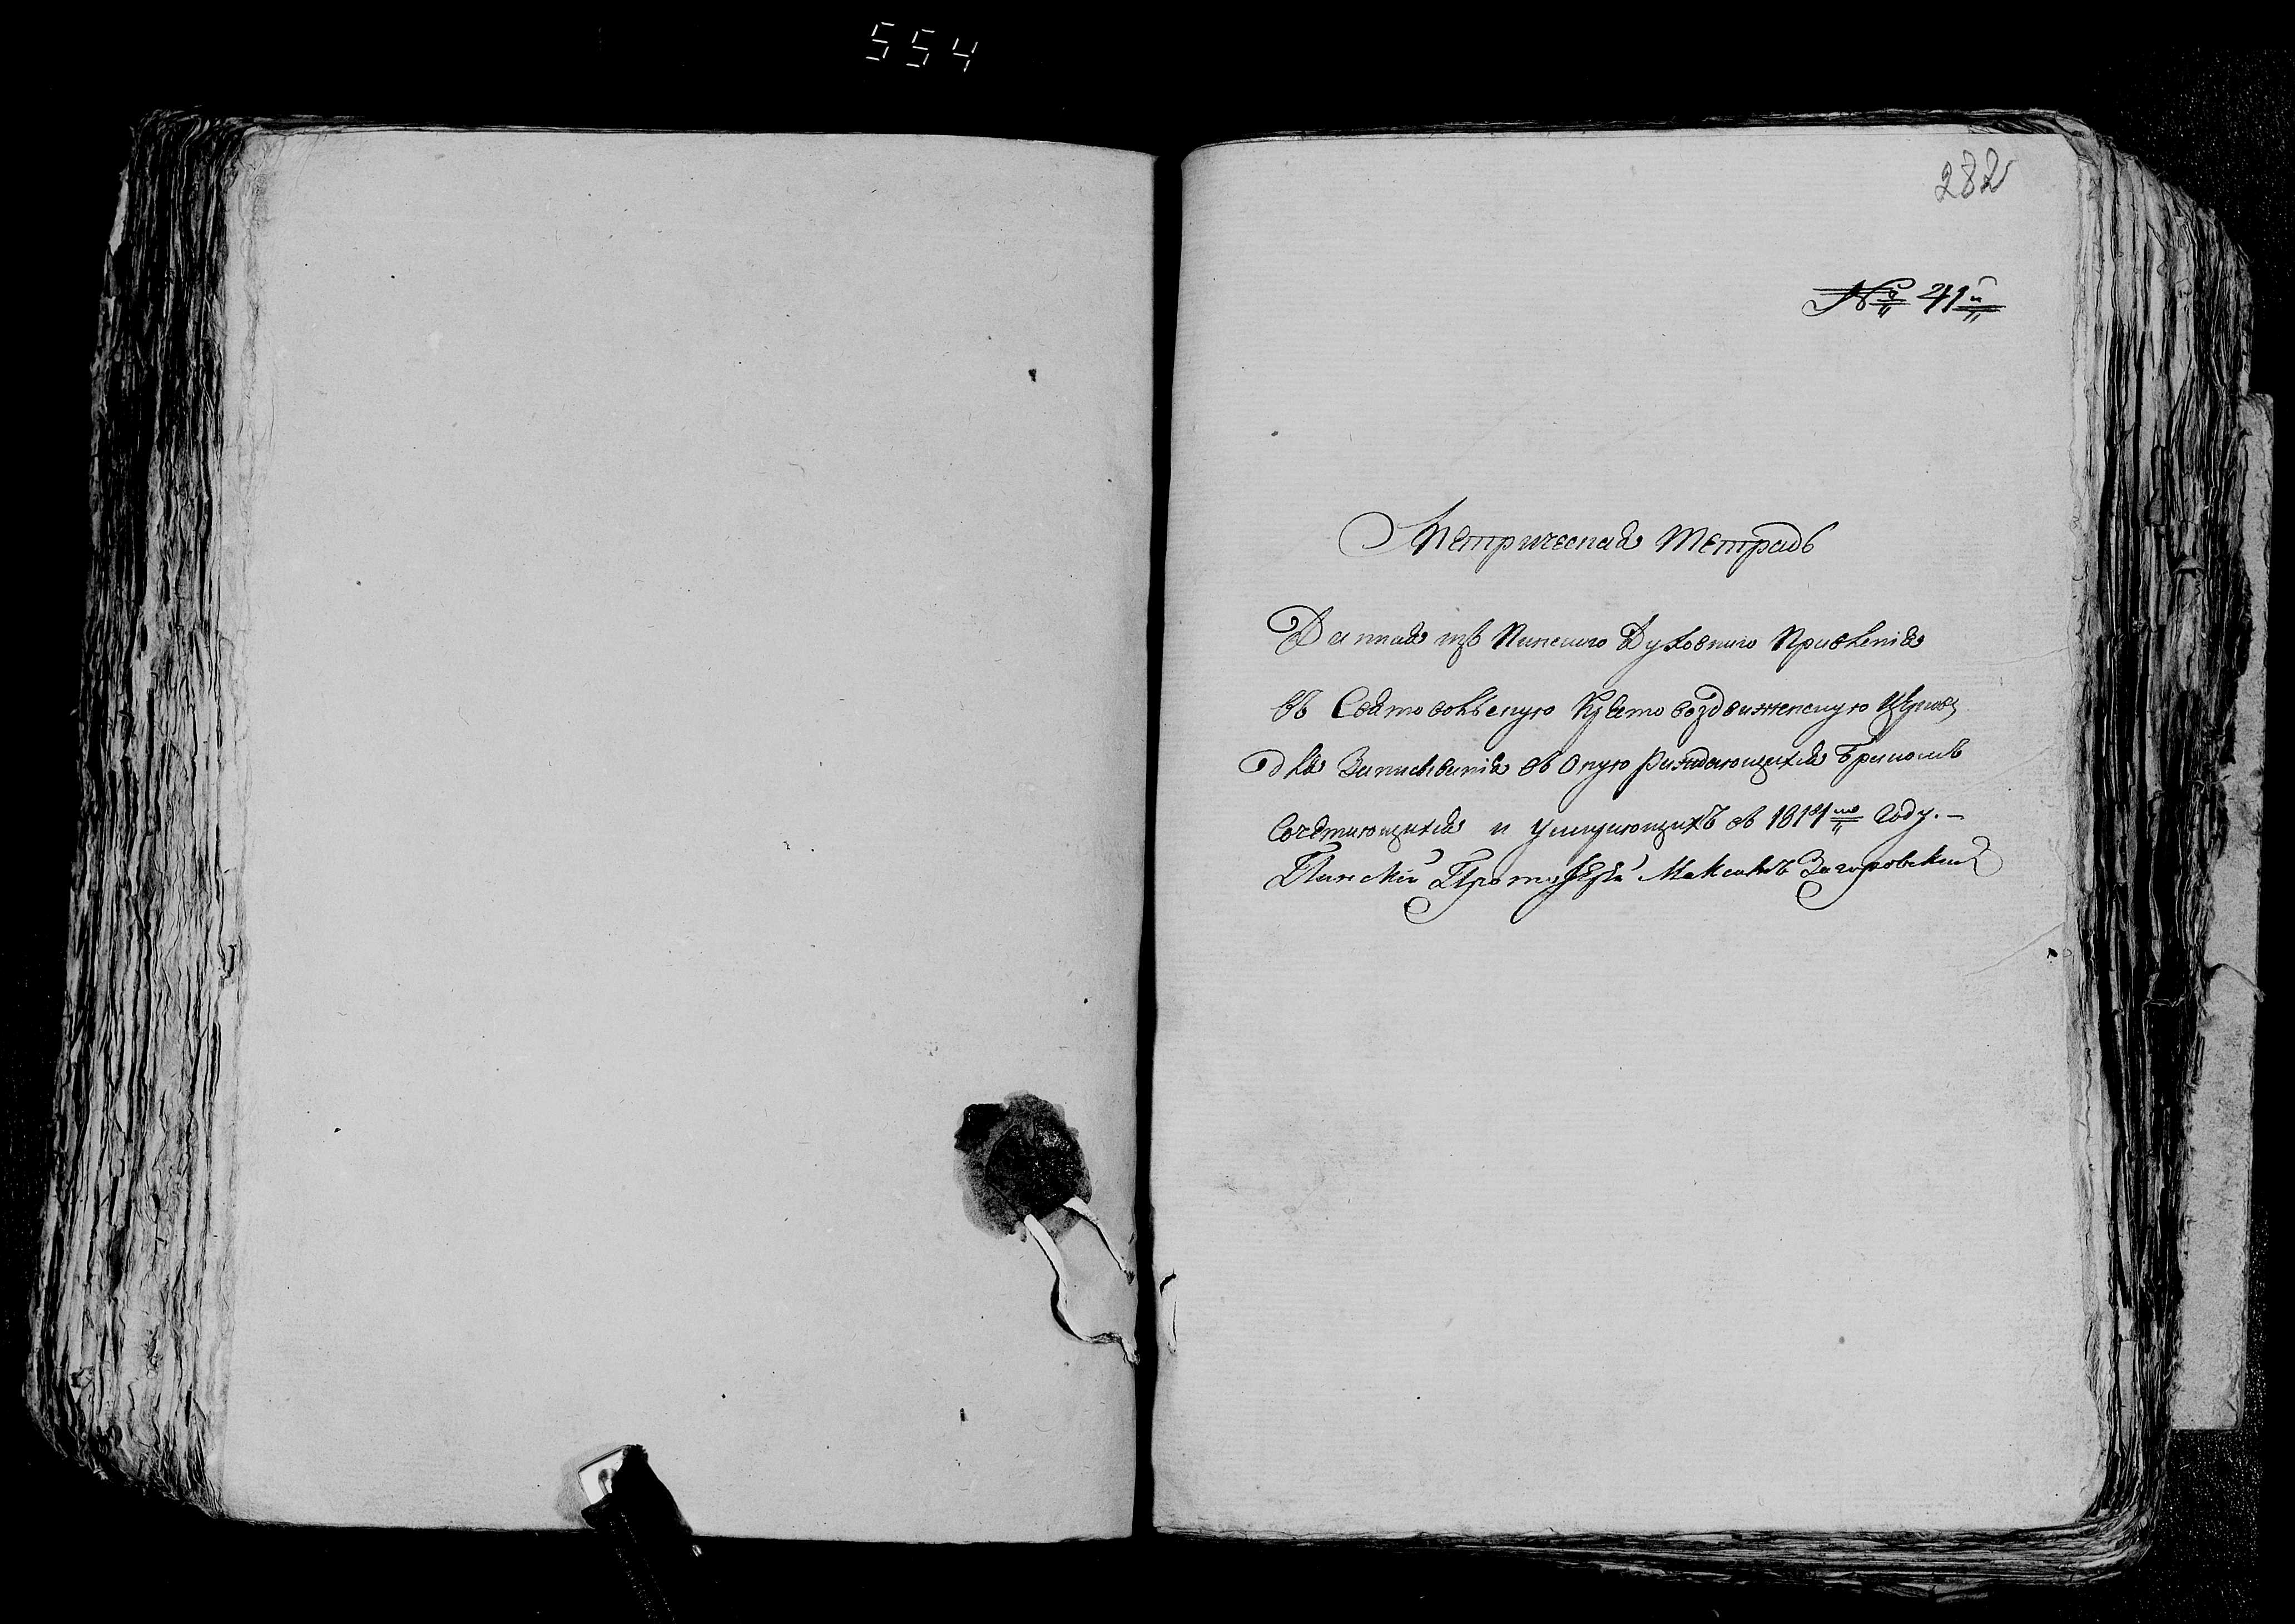 554
282
№ 41й
Метрическая тетрадь
Данная изъ Пинскаго Духовнаго Правленія
въ Святовольскую Кресто воздвиженскую Церковь
для Записыванія въ Оную Раждающихся Бракомъ
Сочетающихся и Умирающихъ въ году.–
Пинскій Протоіерей Максимъ Загоровский